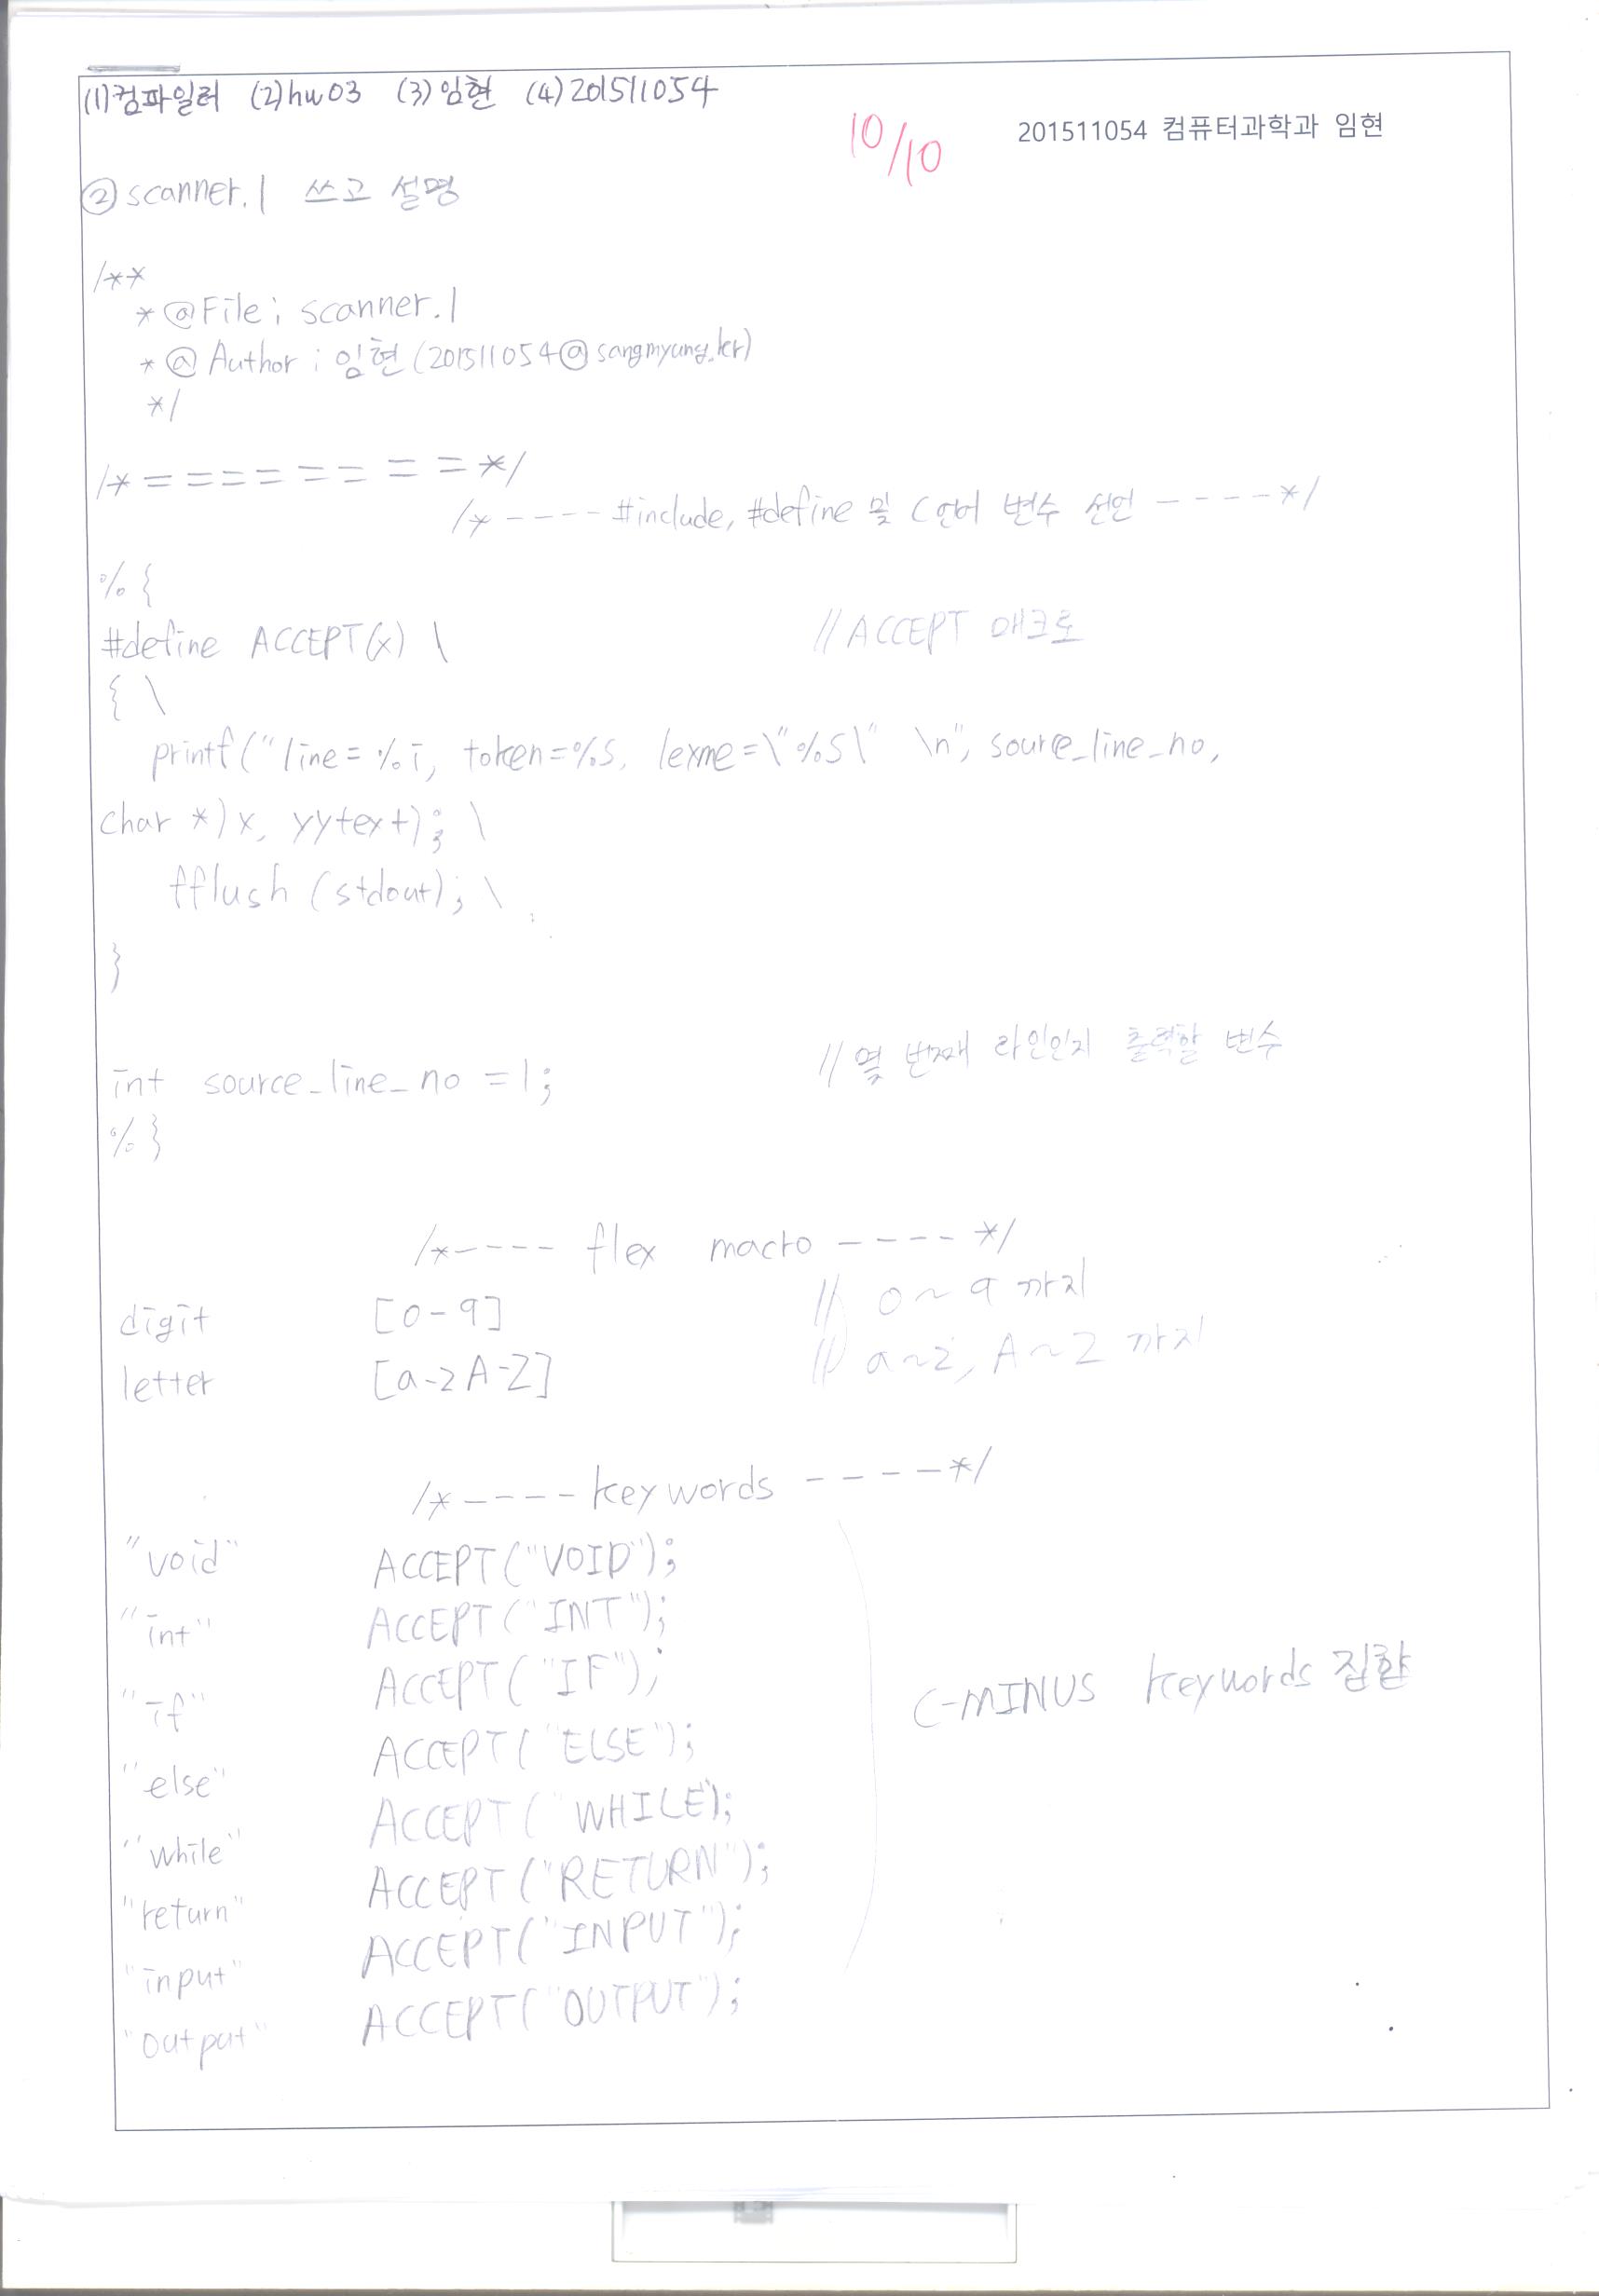 (1)컴파일러 (2)hw03 (3)임현 (4)201511054
10/10
201511054 컴퓨터과학과 임현
②scanner.l 쓰고 설명
/**
*@File; scanner.l
*@Author ; 임현(201511054@sangmyung.kr)
*/
/*=========*/
/*---- #include, #define 및 C언어 변수 선언 ----*/
%{
#define ACCEPT(x) \ //ACCEPT 매크로
{ \
printf("line=%i, token=%s, lexme=\"%s\" \n", source_line_no,
char *)x, yytext); \
fflush(stdout); \
}
int source_line_no =1; //몇 번째 라인인지 출력할 변수
%}
/*---- flex macro ----*/
digit [0-9] // 0~9 까지
letter [a-zA-Z] // a~z, A~Z 까지
/*----keywords ----*/
"void" ACCEPT("VOID");
"int" ACCEPT("INT");
"if" ACCEPT("IF");
"else" ACCEPT("ELSE");
"while" ACCEPT("WHILE);
"return" ACCEPT("RETURN");
"input" ACCEPT("INPUT");
"output" ACCEPT("OUTPUT");
C-MINUS keywords 집합